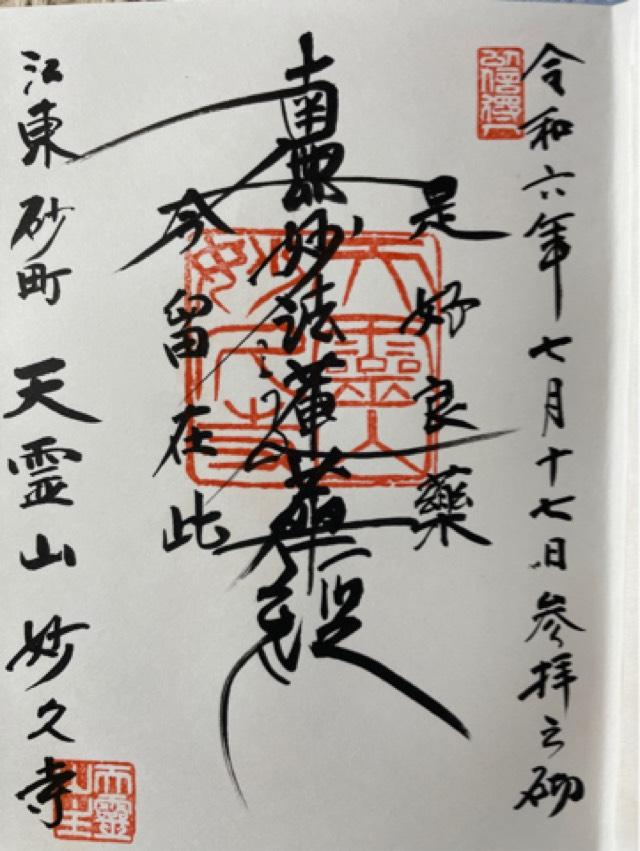 令和六年七月十七日参拝之砌
是好良藥
南無妙法蓮華経
今留在此
江東砂町 天霊山 妙久寺
天靈山
妙久寺